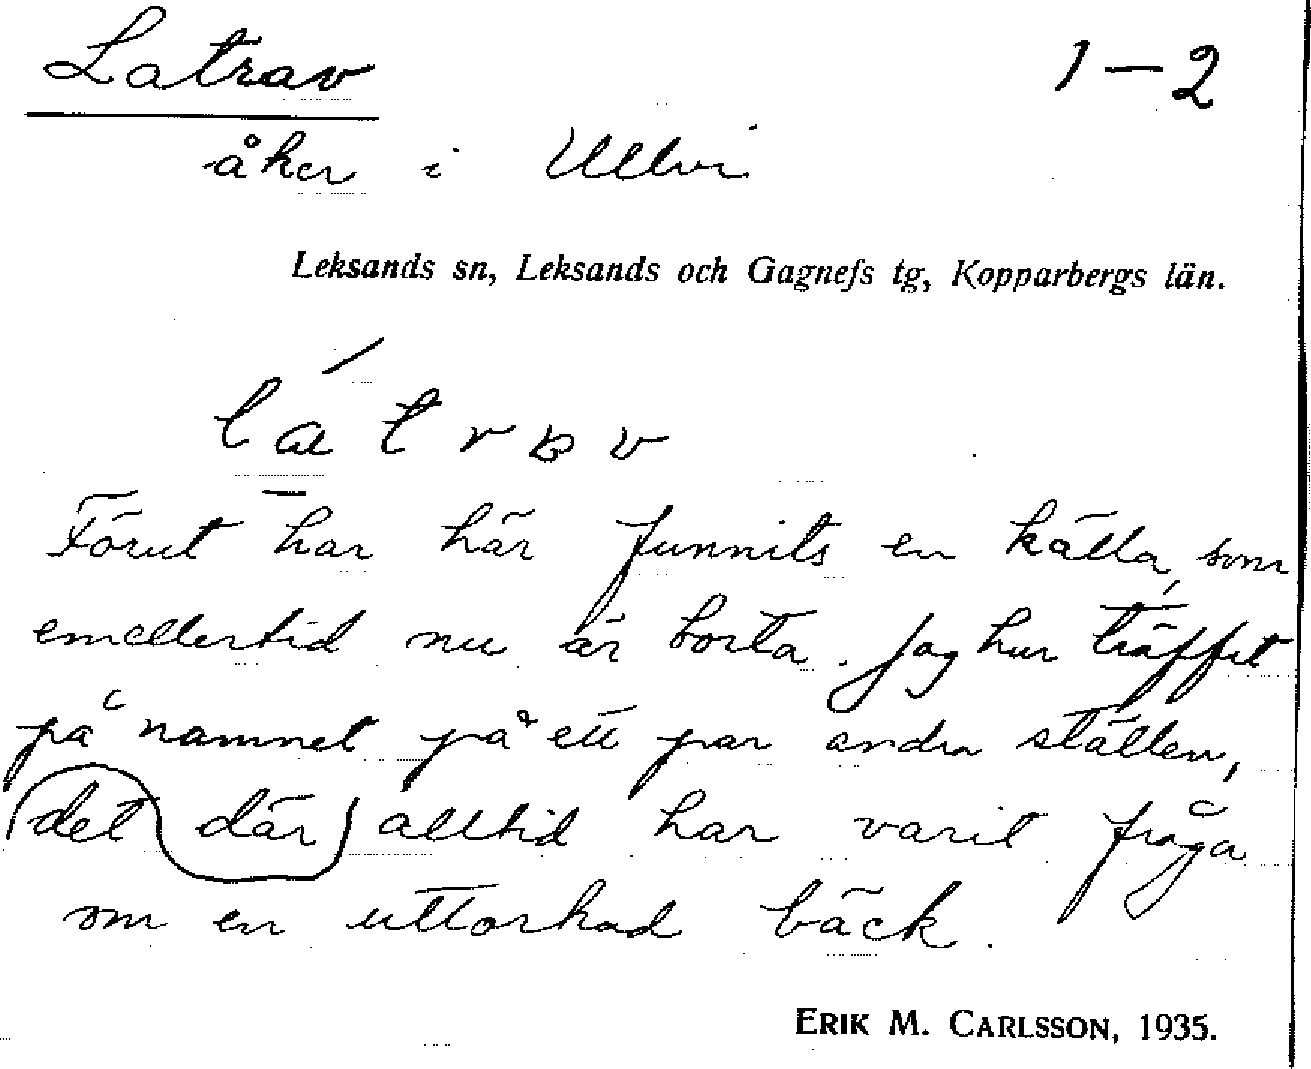 Latrav 1–2
åker i Ullvi
Leksands sn, Leksands och Gagnefs tg, Kopparbergs län.
Förut har här funnits en källa, som
emellertid nu är borta. Jag har träffat
på namnet på ett par andra ställen,
det där alltid har varit fråga
om en uttorkad bäck.
ERIK M. CARLSSON, 1935.